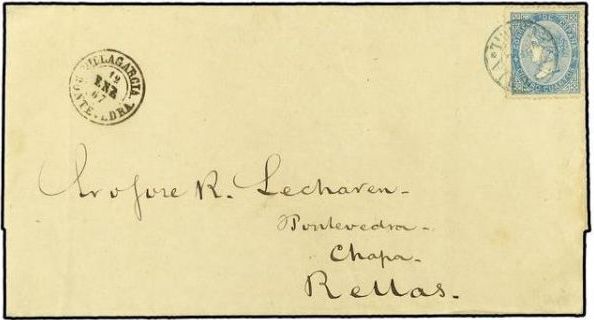 VILLAGARCIA
19
ENE
67
PONTEVEDRA.
CUATRO CUARTOS
José R. Lecharen-
Pontevedra-
Chapa-
Rellas.